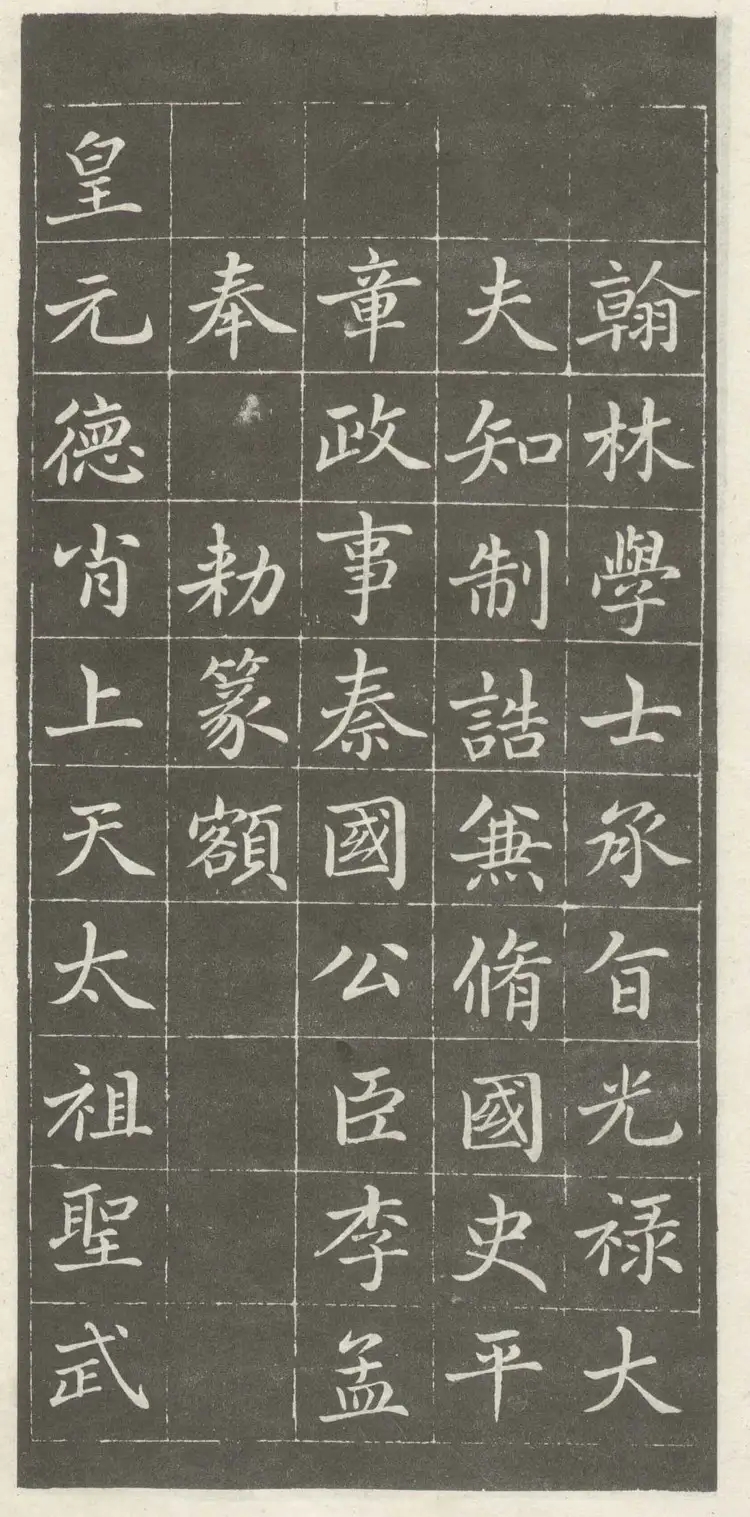 翰林學士承旨光祿大
夫知制誥兼脩國史平
章政事秦國公臣李孟
奉勅篆額
皇元德肖上天太祖聖武